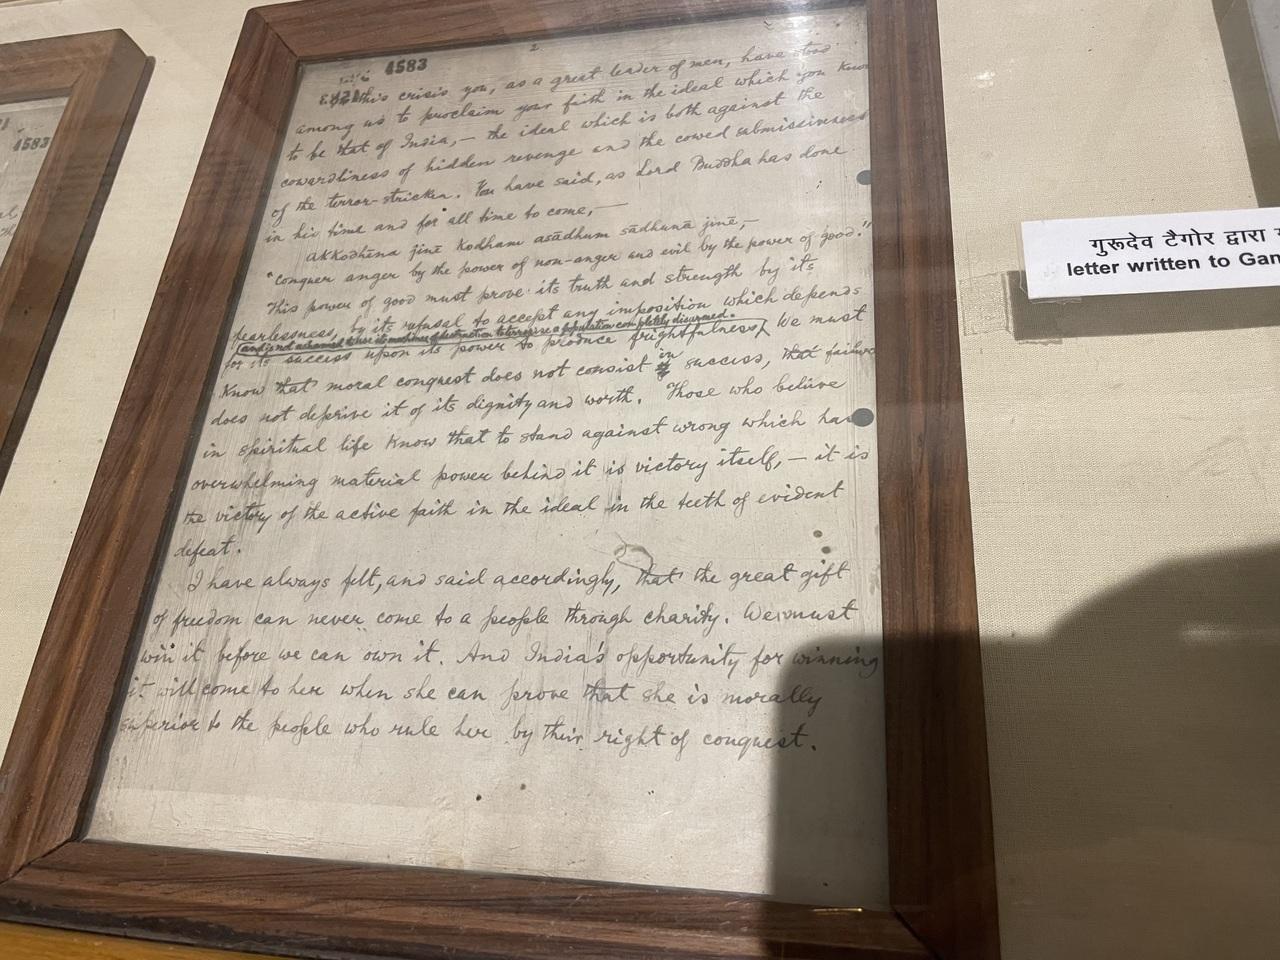 2
4583
this crisis you, as a great leader of men, have stood
among us to proclaim your faith in the ideal which you know
to be that of India,— the ideal which is both against the
cowardliness of hidden revenge and the cowed submissiveness
of the terror-stricken. You have said, as Lord Buddha has done
in his time and for all time to come,—
akkodhēna jinē kodham asādhum sādhunā jinē,—
"Conquer anger by the power of non-anger and evil by the power of good."
This power of good must prove its truth and strength by its
fearlessness, by its refusal to accept any imposition which depends
for its success upon its power to produce frightfulness
and is not ashamed to use its machines of destruction to terrorise a population completely disarmed.
We must
know that moral conquest does not consist in success, that failure
does not deprive it of its dignity and worth. Those who believe
in spiritual life know that to stand against wrong which has
overwhelming material power behind it is victory itself,— it is
the victory of the active faith in the ideal in the teeth of evident
defeat.
I have always felt, and said accordingly, that the great gift
of freedom can never come to a people through charity. We must
win it before we can own it. And India's opportunity for winning
it will come to her when she can prove that she is morally
superior to the people who rule her by their right of conquest.
4583
गुरूदेव टैगोर द्वारा
letter written to Gan